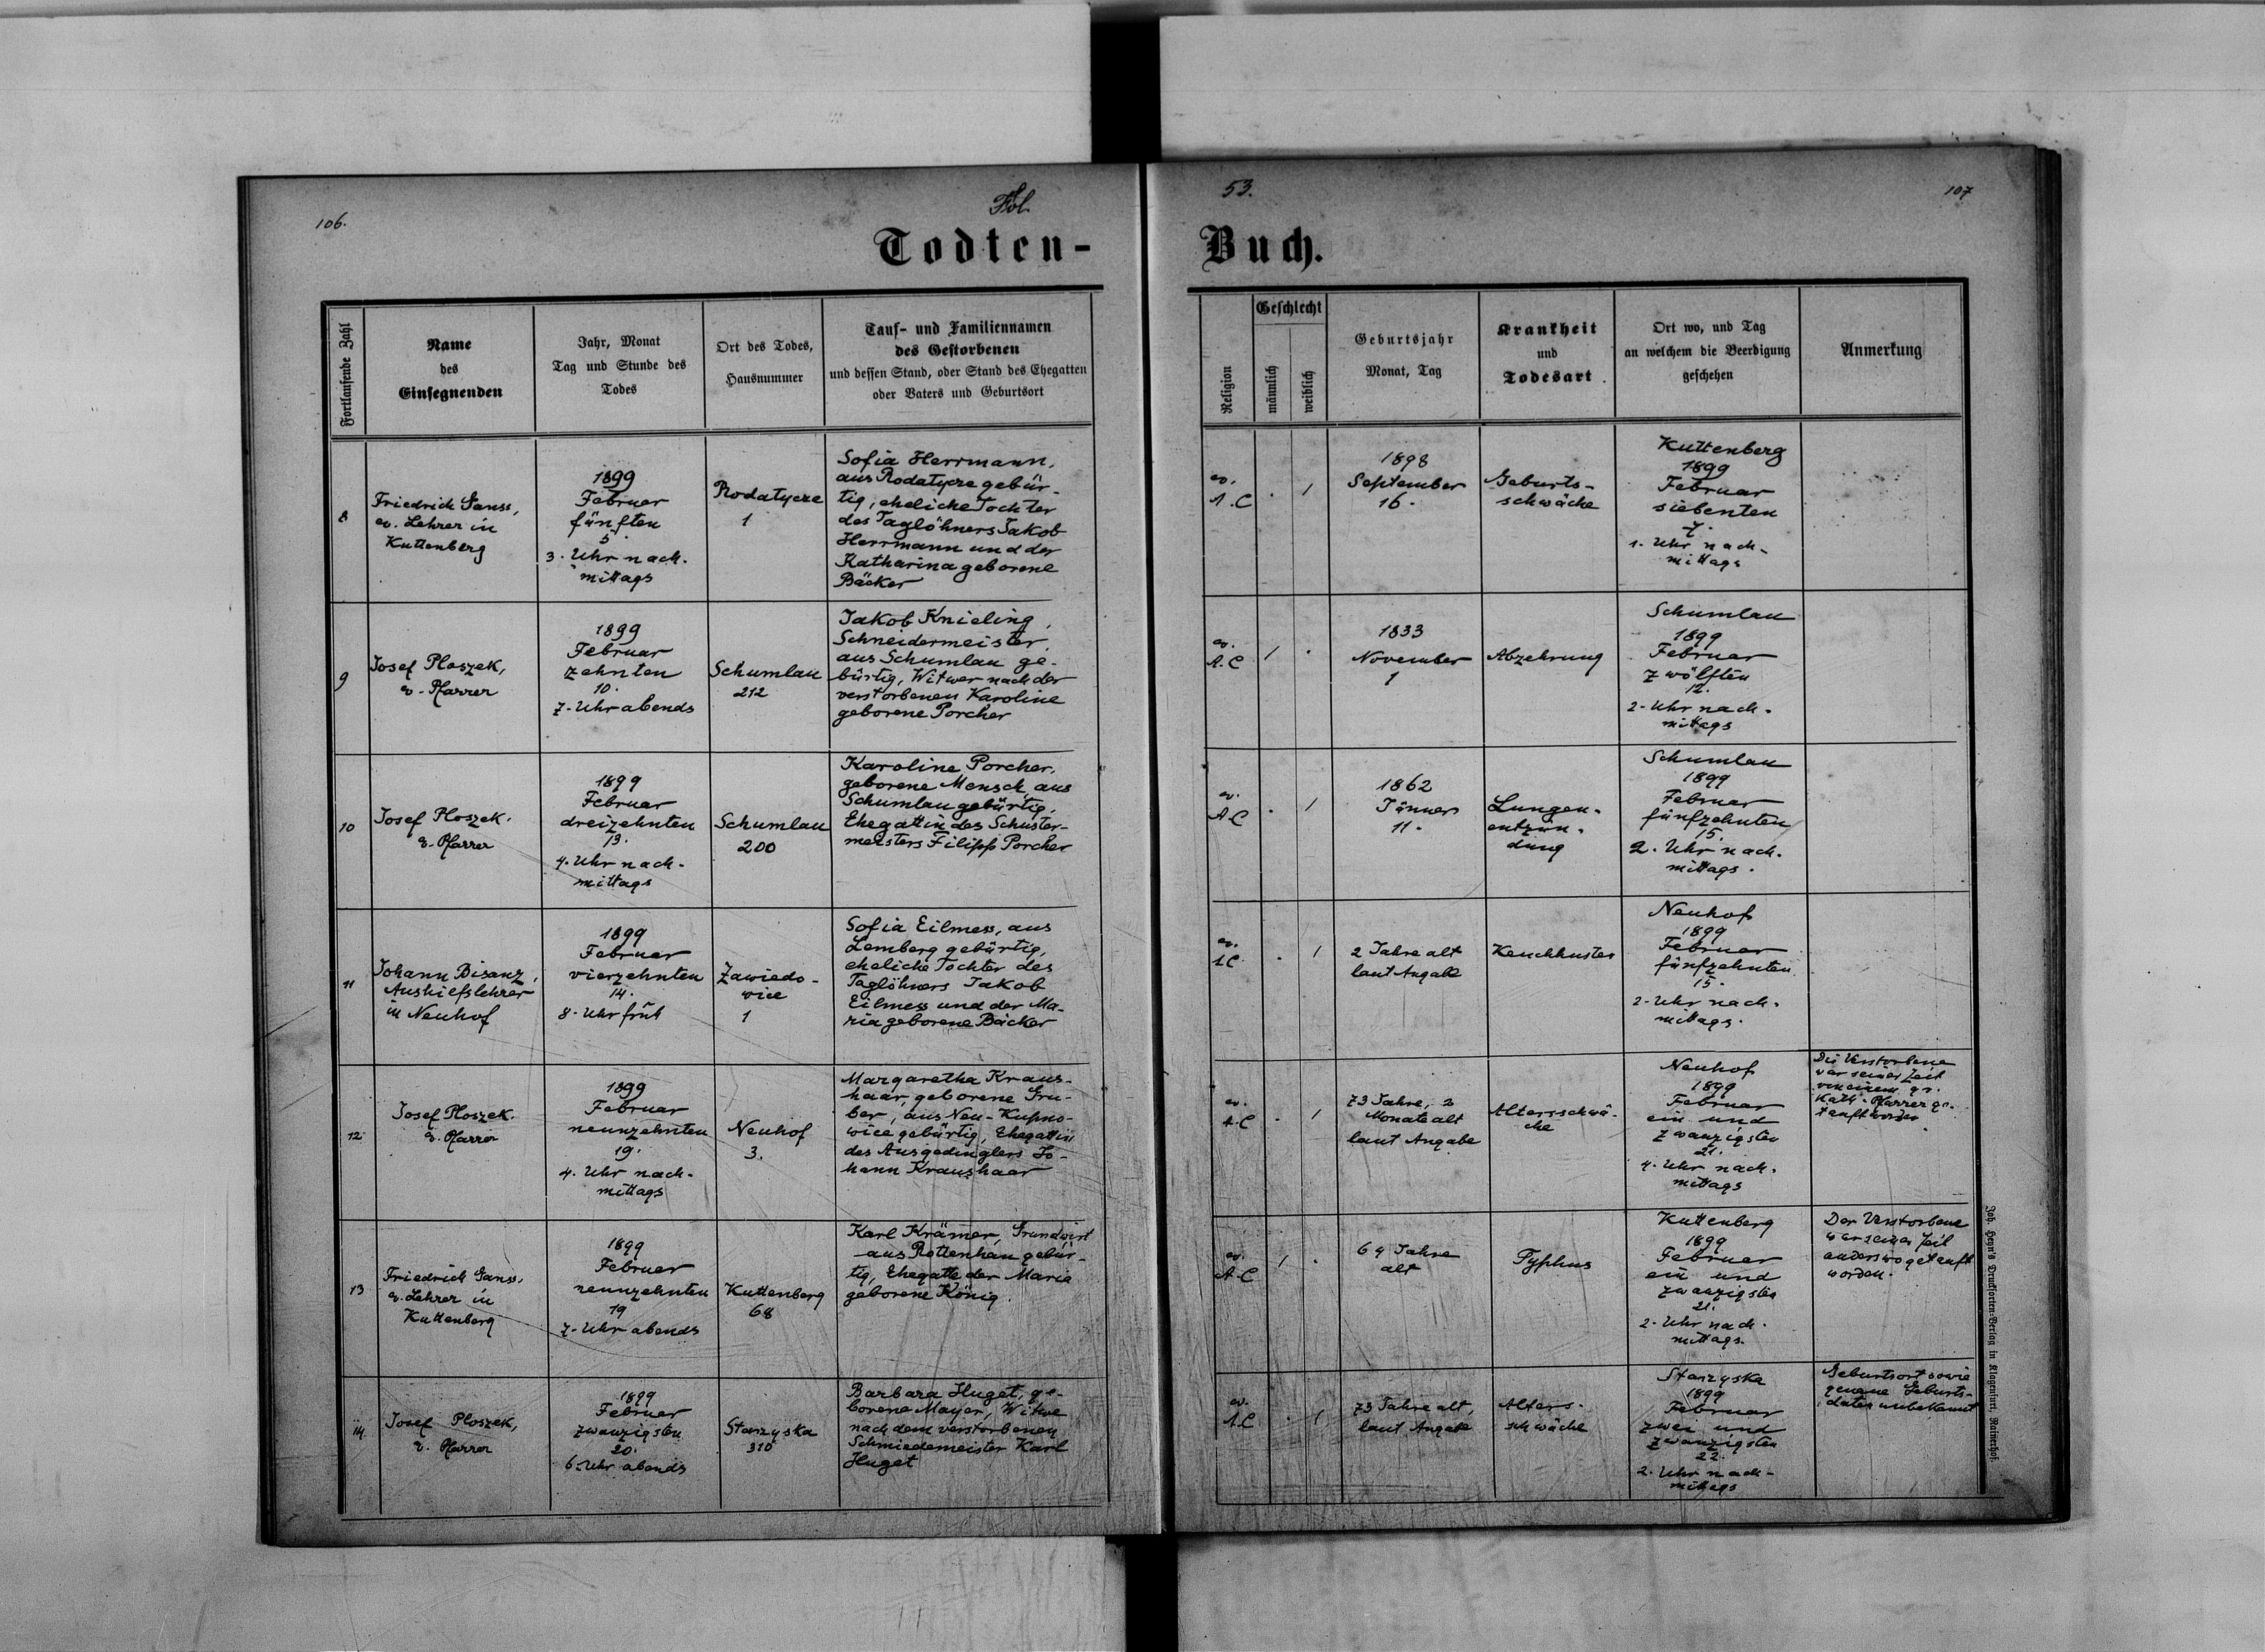 106.
Fol.
53.
107
Todten-
Buch.
Fortlaufende Zahl
Name
des
Einsegnenden
Jahr, Monat
Tag und Stunde des
Todes
Ort des Todes,
Hausnummer
Tauf- und Familiennamen
des Gestorbenen
und dessen Stand, oder Stand des Ehegatten
oder Vaters und Geburtsort
Religion
Geschlecht
männlich
weiblich
Geburtsjahr
Monat, Tag
Krankheit
und
Todesart
Ort wo, und Tag
an welchem die Beerdigung
geschehen
Anmerkung
8
Friedrich Ganss,
ev. Lehrer in
Kuttenberg
1899
Februar
fünften
5.
3. Uhr nach-
mittags
Rodatycze
1
Sofia Herrmann,
aus Rodatycze gebür-
tig, eheliche Tochter
des Taglöhners Jakob
Herrmann und der
Katharina geborene
Bäcker
ev.
A.C
. 1
1898
September
16.
Geburts-
schwäche
Kuttenberg
1899
Februar
siebenten
7.
1. Uhr nach-
mittags
9
Josef Ploszek,
ev. Pfarrer
1899
Februar
zehnten
10.
7. Uhr abends
Schumlau
212
Jakob Knieling,
Schneidermeister,
aus Schumlau ge-
bürtig, Witwer nach der
verstorbenen Karoline
geborene Porcher
ev.
A.C
1 .
1833
November
1
Abzehrung
Schumlau
1899
Februar
zwölften
12.
2. Uhr nach-
mittags
10
Josef Ploszek.
ev. Pfarrer
1899
Februar
dreizehnten
13.
4. Uhr nach-
mittags
Schumlau
200
Karoline Porcher,
geborene Mensch, aus
Schumlau gebürtig,
Ehegattin des Schuster-
meisters Filipp Porcher
ev.
A.C
. 1
1862
Jänner
11.
Lungen-
entzün-
dung
Schumlau
1899
Februar
fünfzehnten
15.
2. Uhr nach-
mittags.
11
Johann Bisanz,
Aushilfslehrer
in Neuhof
1899
Februar
vierzehnten
14.
8. Uhr früh
Zawiedo-
wice
1
Sofia Eilmess, aus
Lemberg gebürtig,
eheliche Tochter des
Taglöhners Jakob
Eilmess und der Ma-
ria geborene Bäcker
ev.
A.C
. 1
2 Jahre alt
laut Angabe
Keuchhusten
Neuhof
1899
Februar
fünfzehnten
15.
2. Uhr nach-
mittags.
12
Josef Ploszek.
ev. Pfarrer
1899
Februar
neunzehnten
19.
4. Uhr nach-
mittags
Neuhof
3.
Margaretha Kraus-
haar, geborene Gru-
ber, aus Neu-Kupno-
wice gebürtig, Ehegattin
des Ausgedinglers Jo-
hann Kraushaar
ev.
A.C
. 1
73 Jahre, 2
Monate alt
laut Angabe
Altersschwä-
che
Neuhof
1899
Februar
ein und
zwanzigsten
21.
4. Uhr nach-
mittags
Die Verstorbene
war seiner Zeit
von einem gr.
kath. Pfarrer ge-
tauft worden.
13
Friedrich Ganss,
ev. Lehrer in
Kuttenberg
1899
Februar
neunzehnten
19
7. Uhr abends
Kuttenberg
68
Karl Krämer, Grundwirt
aus Rottenhan gebür-
tig, Ehegatte der Maria
geborene König.
ev.
A.C
1 .
64 Jahre
alt
Typhus
Kuttenberg
1899
Februar
ein und
zwanzigsten
21.
2. Uhr nach-
mittags.
Der Verstorbene
war seiner Zeit
anderswo getauft
worden.
14
Josef Ploszek,
ev. Pfarrer
1899
Februar
zwanzigsten
20.
6. Uhr abends
Starzyska
310
Barbara Huget, ge-
borene Mayer, Witwe
nach dem verstorbenen
Schmiedemeister Karl
Huget
ev.
A.C
. 1
73 Jahre alt,
laut Angabe
Alters-
schwäche
Starzyska
1899
Februar
zwei und
zwanzigsten
22.
2. Uhr nach-
mittags
Geburtsort sowie
genaue Geburts-
daten unbekannt
Joh. Heyn's Drucksorten-Verlag in Klagenfurt, Rainerhof.